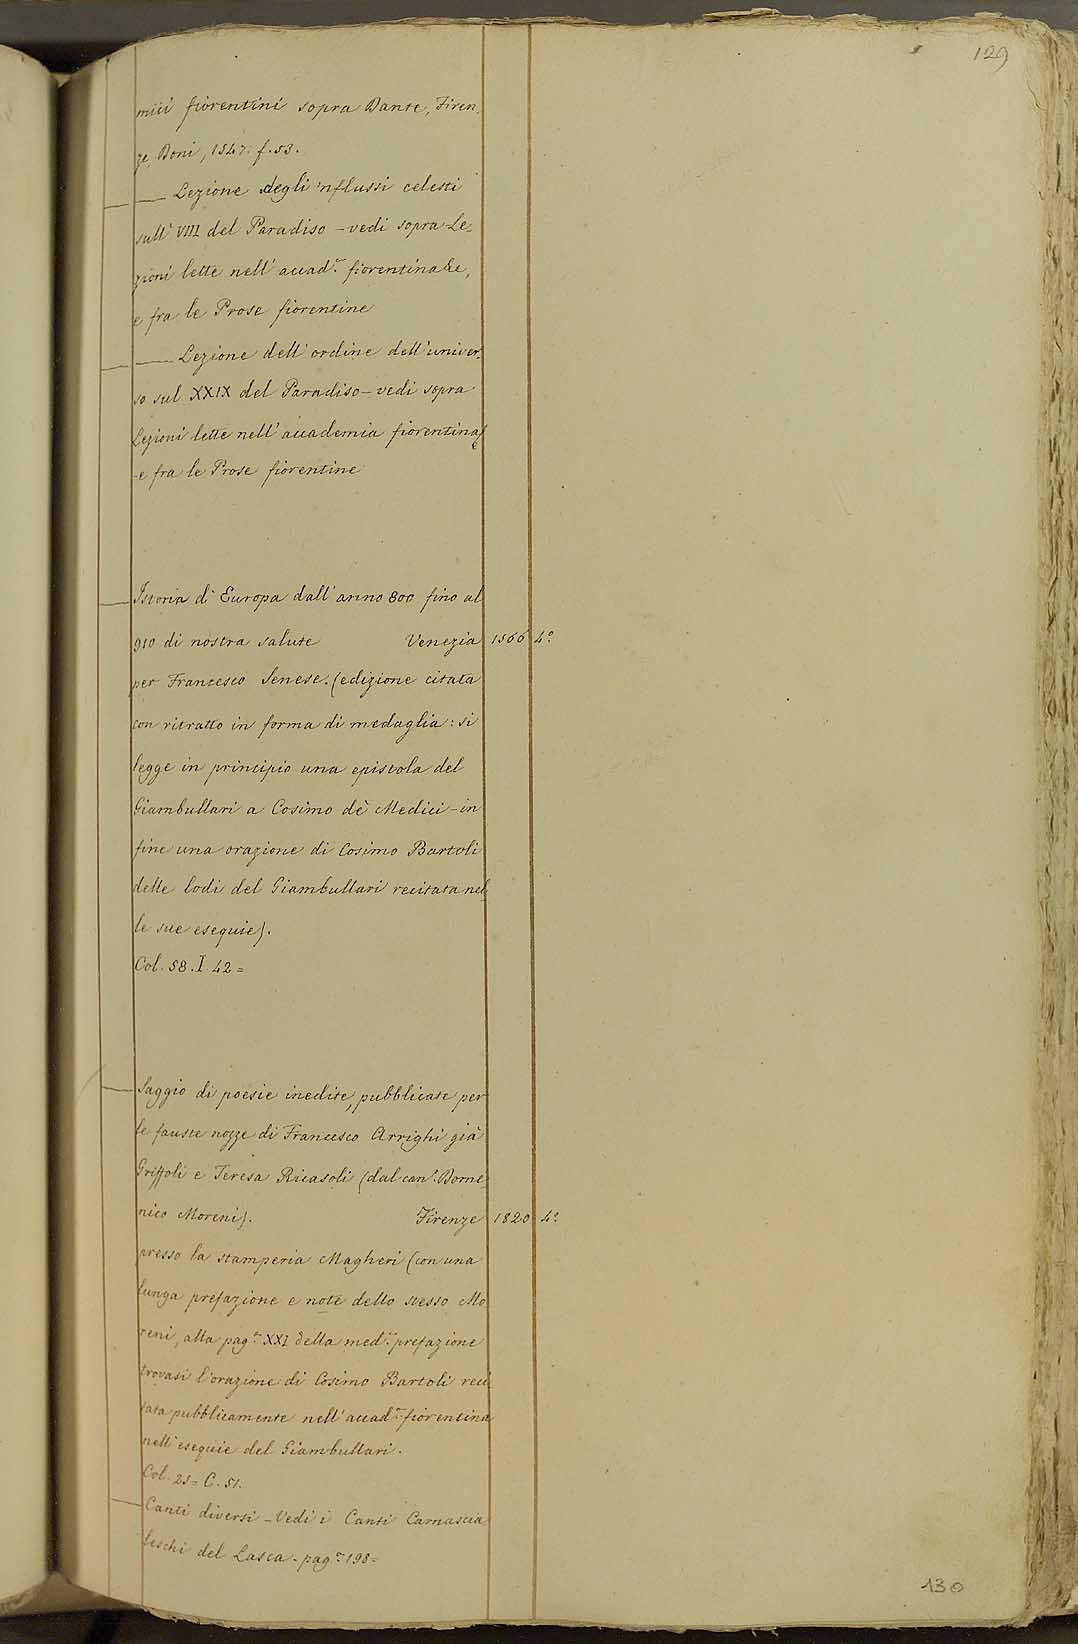 129
miii fiorentini sopra Dante, Firen,
ze, Doni, 1547. f. 53.
— Lezione degli 'nflussi celesti
sull' VIII del Paradiso – vedi sopra Le,
zioni lette nell' accad.ª fiorentina &c,
e fra le Prose fiorentine
— Lezione dell' ordine dell' univer,
so sul XXIX del Paradiso – vedi sopra
Lezioni lette nell' accademia fiorentina &c
e fra le Prose fiorentine
— Istoria d' Europa dall' anno 800 fino al
910 di nostra salute Venezia 1566 4.º
per Francesco Senese. (edizione citata
con ritratto in forma di medaglia: si
legge in principio una epistola del
Giambullari a Cosimo de' Medici – in
fine una orazione di Cosimo Bartoli
delle lodi del Giambullari recitata nel,
le sue esequie).
Col. 58. I. 42 =
— Saggio di poesie inedite, pubblicate per
le fauste nozze di Francesco Arrighi già
Griffoli e Teresa Ricasoli (dal can.º Dome,
nico Moreni). Firenze 1820 4.º
presso la stamperia Magheri (con una
lunga prefazione e note dello stesso Mo,
reni, alla pag.ª XXI della med.ª prefazione
trovasi l'orazione di Cosimo Bartoli reci,
tata pubblicamente nell' accad.ª fiorentina
nell' esequie del Giambullari.
Col. 25 = C. 51.
— Canti diversi – Vedi i Canti Carnascia
leschi del Lasca – pag.ª 198 =
130